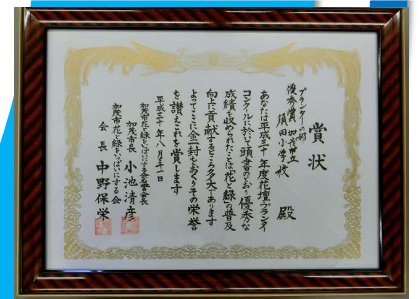 賞状
プランターの部
優秀賞 加茂市立
須田小学校 殿
あなたは平成三十年度花壇プランター
コンクールに於いて頭書のとおり優秀な
成績を収められたことは花と緑の普及
向上に貢献するところ多大であります
よってここに金一封をおくりその栄誉
を讃えこれを賞します
平成三十年八月二十一日
加茂市花と緑をいっぱいにする会名誉会長
加茂市長 小池清彦
加茂市花と緑をいっぱいにする会
会長 中野保栄